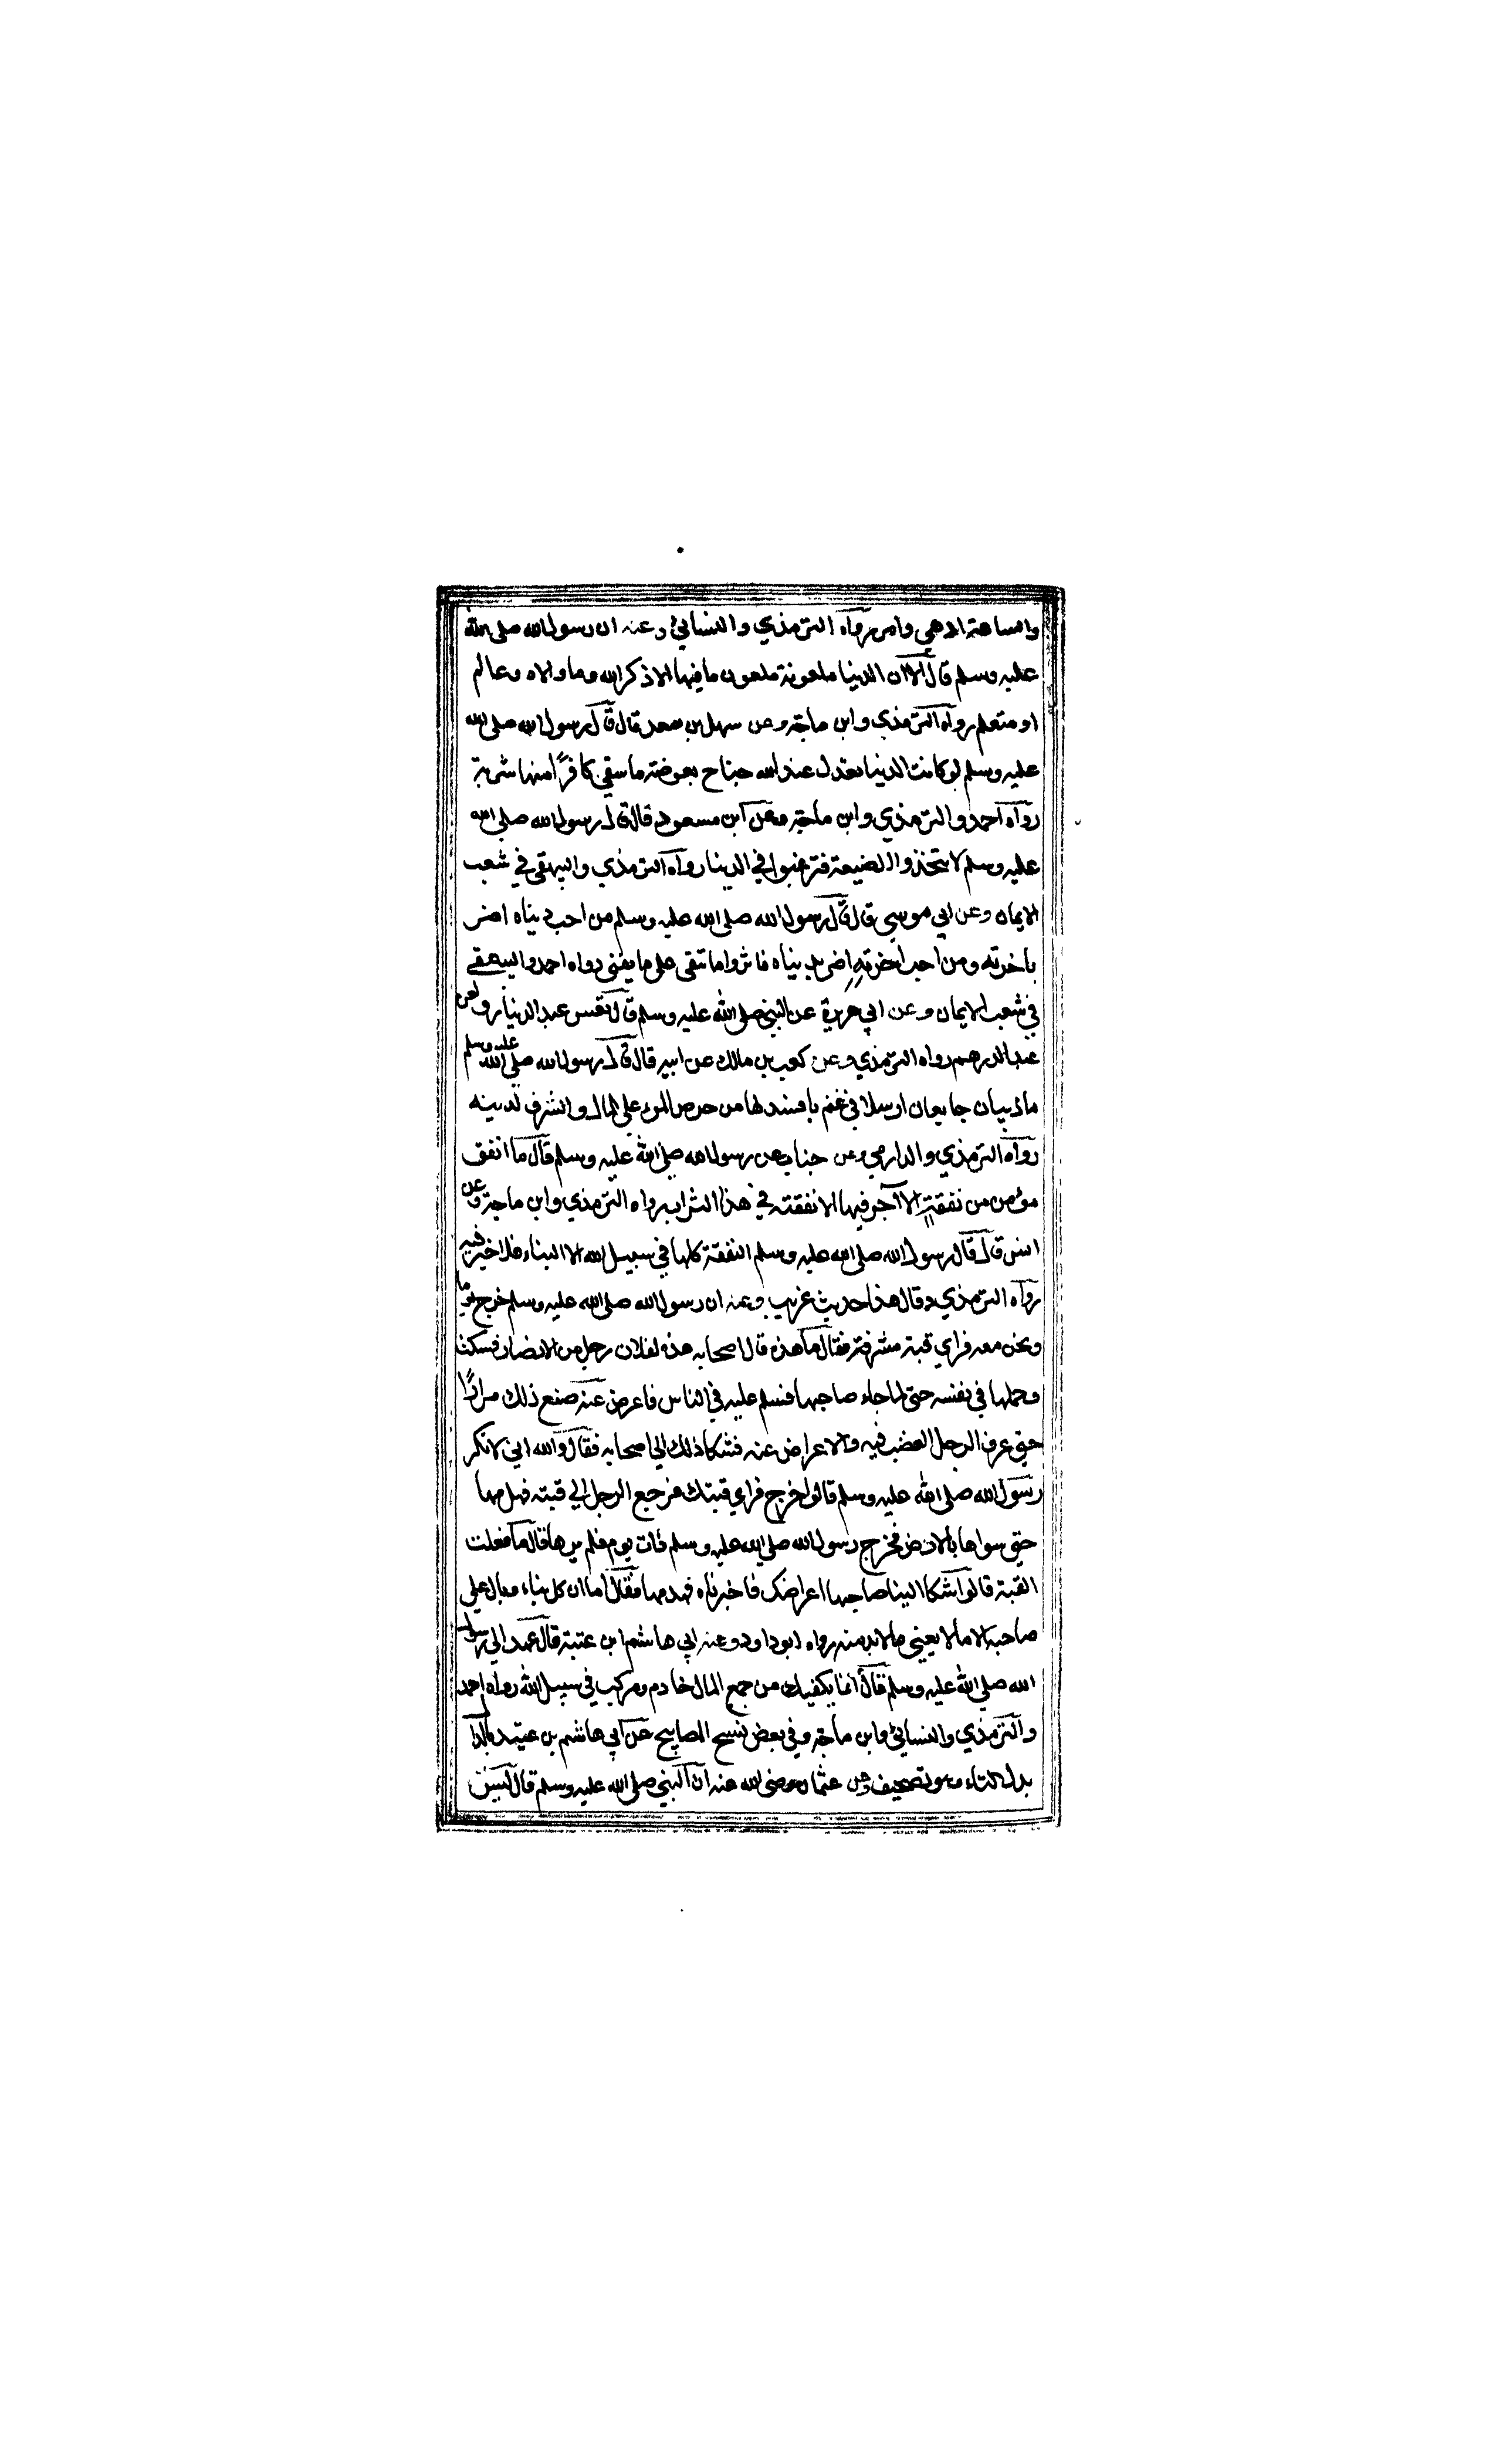 والساعة ادهى وامر رواه الترمذي والنسائي وعنه ان رسول الله صلى الله
عليه وسلم قال الا ان الدنيا ملعونة ملعون ما فيها الا ذكر الله وما والاه وعالم
او متعلم رواه الترمذي وابن ماجة وعن سهل بن سعد قال قال رسول الله صلى الله
عليه وسلم لو كانت الدنيا تعدل عند الله جناح بعوضة ما سقي كافرًا منها شربة
رواه احمد والترمذي وابن ماجة وعن ابن مسعود قال قال رسول الله صلى الله
عليه وسلم لا تتخذوا الضيعة فترغبوا في الدينا رواه الترمذي والبيهقي في شعب
الايمان وعن ابي موسي قال قال رسول الله صلى الله عليه وسلم من احب دنياه اضر
باخرته ومن احب اخرته اضر بدنياه فاثروا ما تبقى على ما يفنى رواه احمد والبيهقي
في شعب الايمان وعن ابي هريرة عن النبي صلى الله عليه وسلم قال تعس عبد الدنيار ولعن
عبد الدرهم رواه الترمذي وعن كعب بن مالك عن ابيه قال قال رسول الله صلى الله عليه وسلم
ما ذيبان جايعان ارسلا في غنم بافسد لها من حرص المرء على المال والشرف لدينه
رواه الترمذي والدارمي وعن جناب عن رسول الله صلى الله عليه وسلم قال ما انفق
مؤمن من نفقة الا آجر فيها الا نفقته في هذا التراب رواه الترمذي وابن ماجة وعن
انس قال قال رسول الله صلى الله عليه وسلم النفقة كلها في سبيل الله الا البناء فلا خير فيه
رواه الترمذي وقال هذا حديث غريب وعنه ان رسول الله صلى الله عليه وسلم خرج يوما
ونحن معه فراي قبة مشرفة فقال ما هذه قال اصحابه هذه لفلان رجل من الانصار فسكت
وحملها في نفسه حتى لما جاء صاحبها فسلم عليه في الناس فاعرض عنه صنع ذلك مرارًا
حتي عرف الرجل الغضب فيه والاعراض عنه فشكا ذلك الى اصحابه فقال والله اني لانكر
رسول الله صلى الله عليه وسلم قالوا خرج فراي قبتك فرجع الرجل الي قبته فهدمها
حتي سواها بالارض فخرج رسول الله صلى الله عليه وسلم ذات يوم فلم يرها قال ما فعلت
القبة قالوا شكا الينا صاحبها اعراضك فاخبرناه فهدمها فقال اما ان كل بناء وبال علي
صاحبه الا ما لا يعني ما لا بد منه رواه ابو داود وعنه ابي هاشم ابن عتبة قال عهد الي رسول
الله صلى الله عليه وسلم قال انما يكفيك من جمع المال خادم ومركب في سبيل الله رواه احمد
والترمذي والنسائي وابن ماجة وفي بعض نسخ المصابيح عن ابي هاشم بن عتبد بالدال
بدل التاء وهو تصحيف وعن عثمان رضي الله عنه ان النبي صلى الله عليه وسلم قال ليس